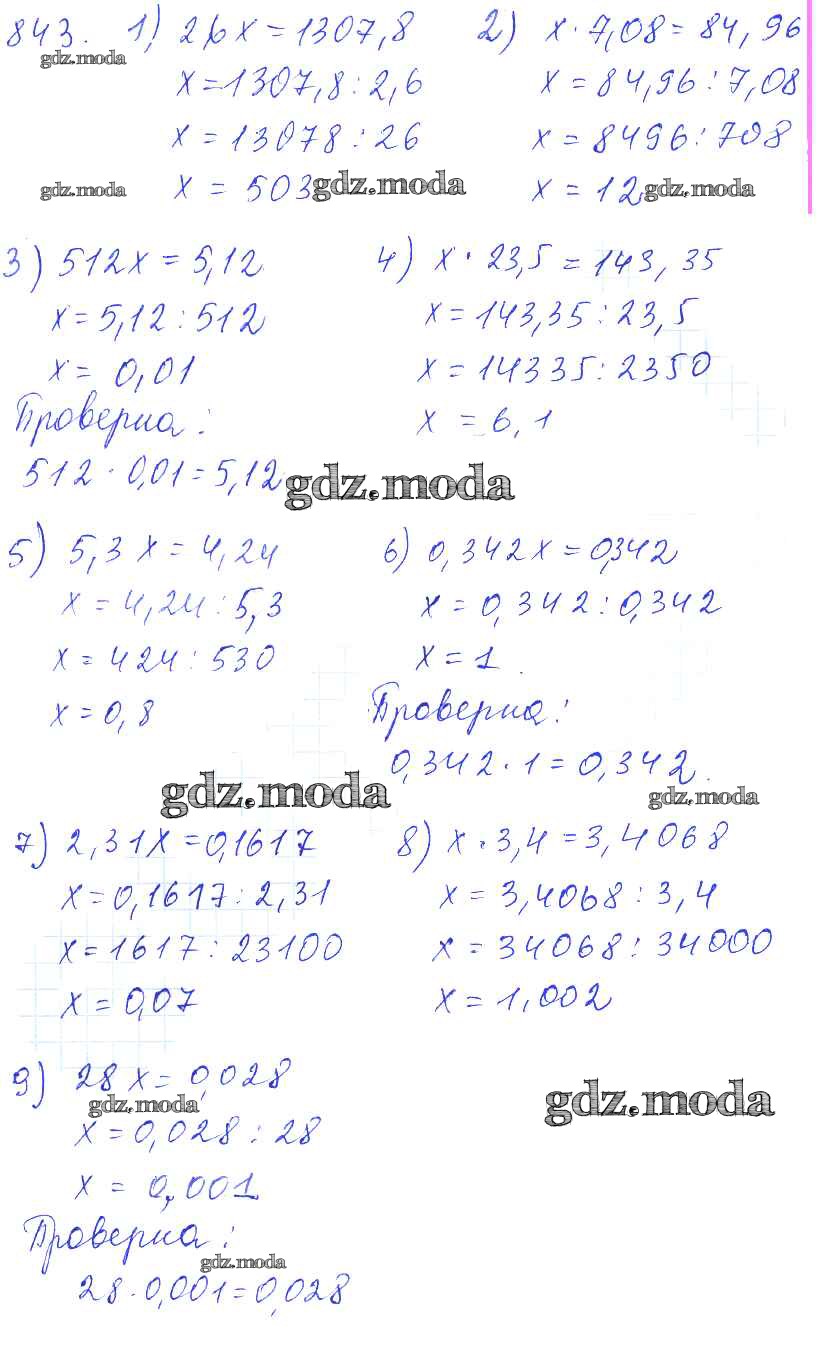 843. 1) 2,6x = 1307,8
2) x · 7,08 = 84,96
gdz.moda
x = 1307,8 : 2,6
x = 84,96 : 7,08
x = 13078 : 26
x = 8496 : 708
gdz.moda
x = 503
gdz.moda
x = 12
gdz.moda
3) 512x = 5,12
4) x · 23,5 = 143,35
x = 5,12 : 512
x = 143,35 : 23,5
x = 0,01
x = 14335 : 2350
Проверка:
x = 6,1
512 · 0,01 = 5,12
gdz.moda
5) 5,3x = 4,24
6) 0,342x = 0,342
x = 4,24 : 5,3
x = 0,342 : 0,342
x = 424 : 530
x = 1
x = 0,8
Проверка:
0,342 · 1 = 0,342.
gdz.moda
gdz.moda
7) 2,31x = 0,1617
8) x · 3,4 = 3,4068
x = 0,1617 : 2,31
x = 3,4068 : 3,4
x = 1617 : 23100
x = 34068 : 34000
x = 0,07
x = 1,002
9) 28x = 0,028
gdz.moda
gdz.moda
x = 0,028 : 28
x = 0,001
Проверка:
gdz.moda
28 · 0,001 = 0,028